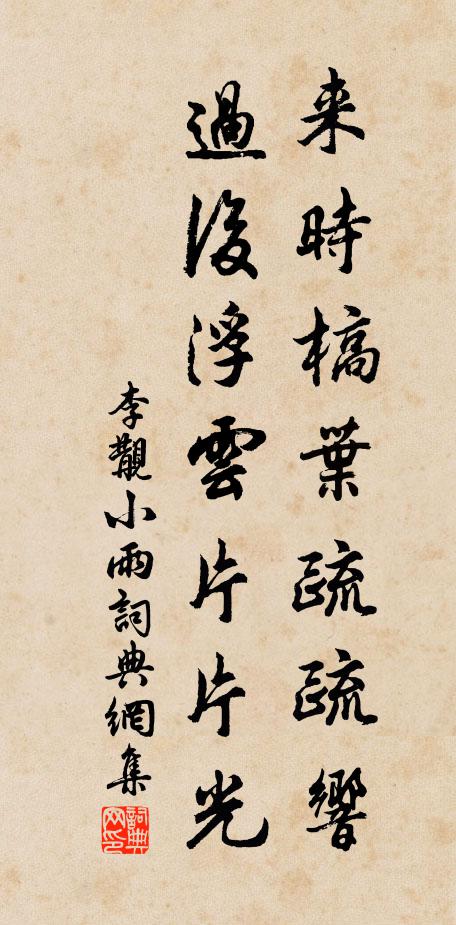 来時槁葉疏疏響
過後浮雲片片光
李觀小雨詞典網集
詞典
网印